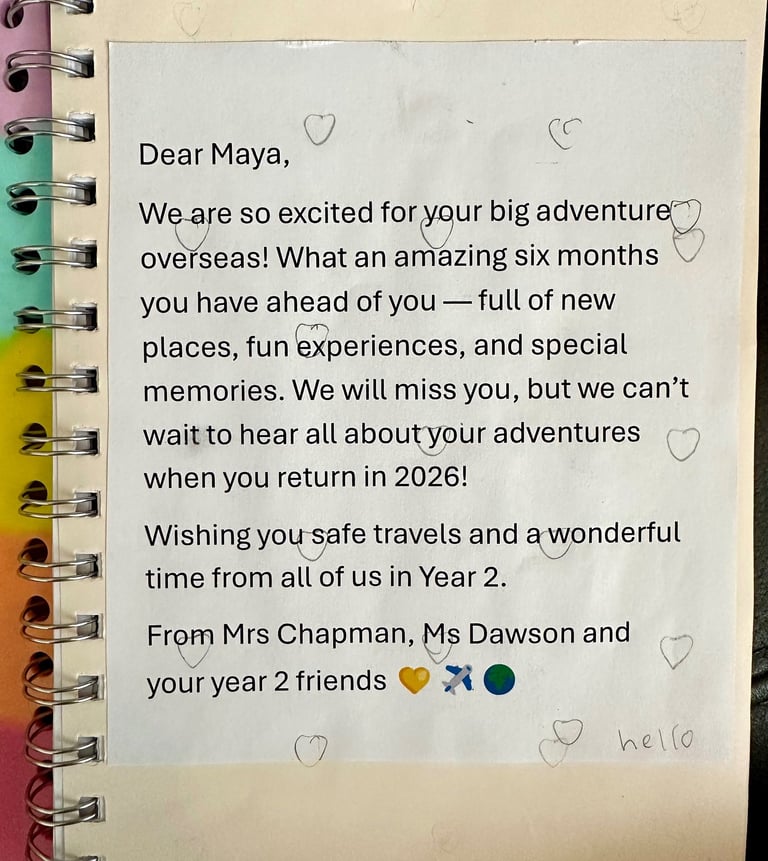 Dear Maya,
We are so excited for your big adventure
overseas! What an amazing six months
you have ahead of you — full of new
places, fun experiences, and special
memories. We will miss you, but we can’t
wait to hear all about your adventures
when you return in 2026!
Wishing you safe travels and a wonderful
time from all of us in Year 2.
From Mrs Chapman, Ms Dawson and
your year 2 friends 💛 ✈️ 🌍
hello